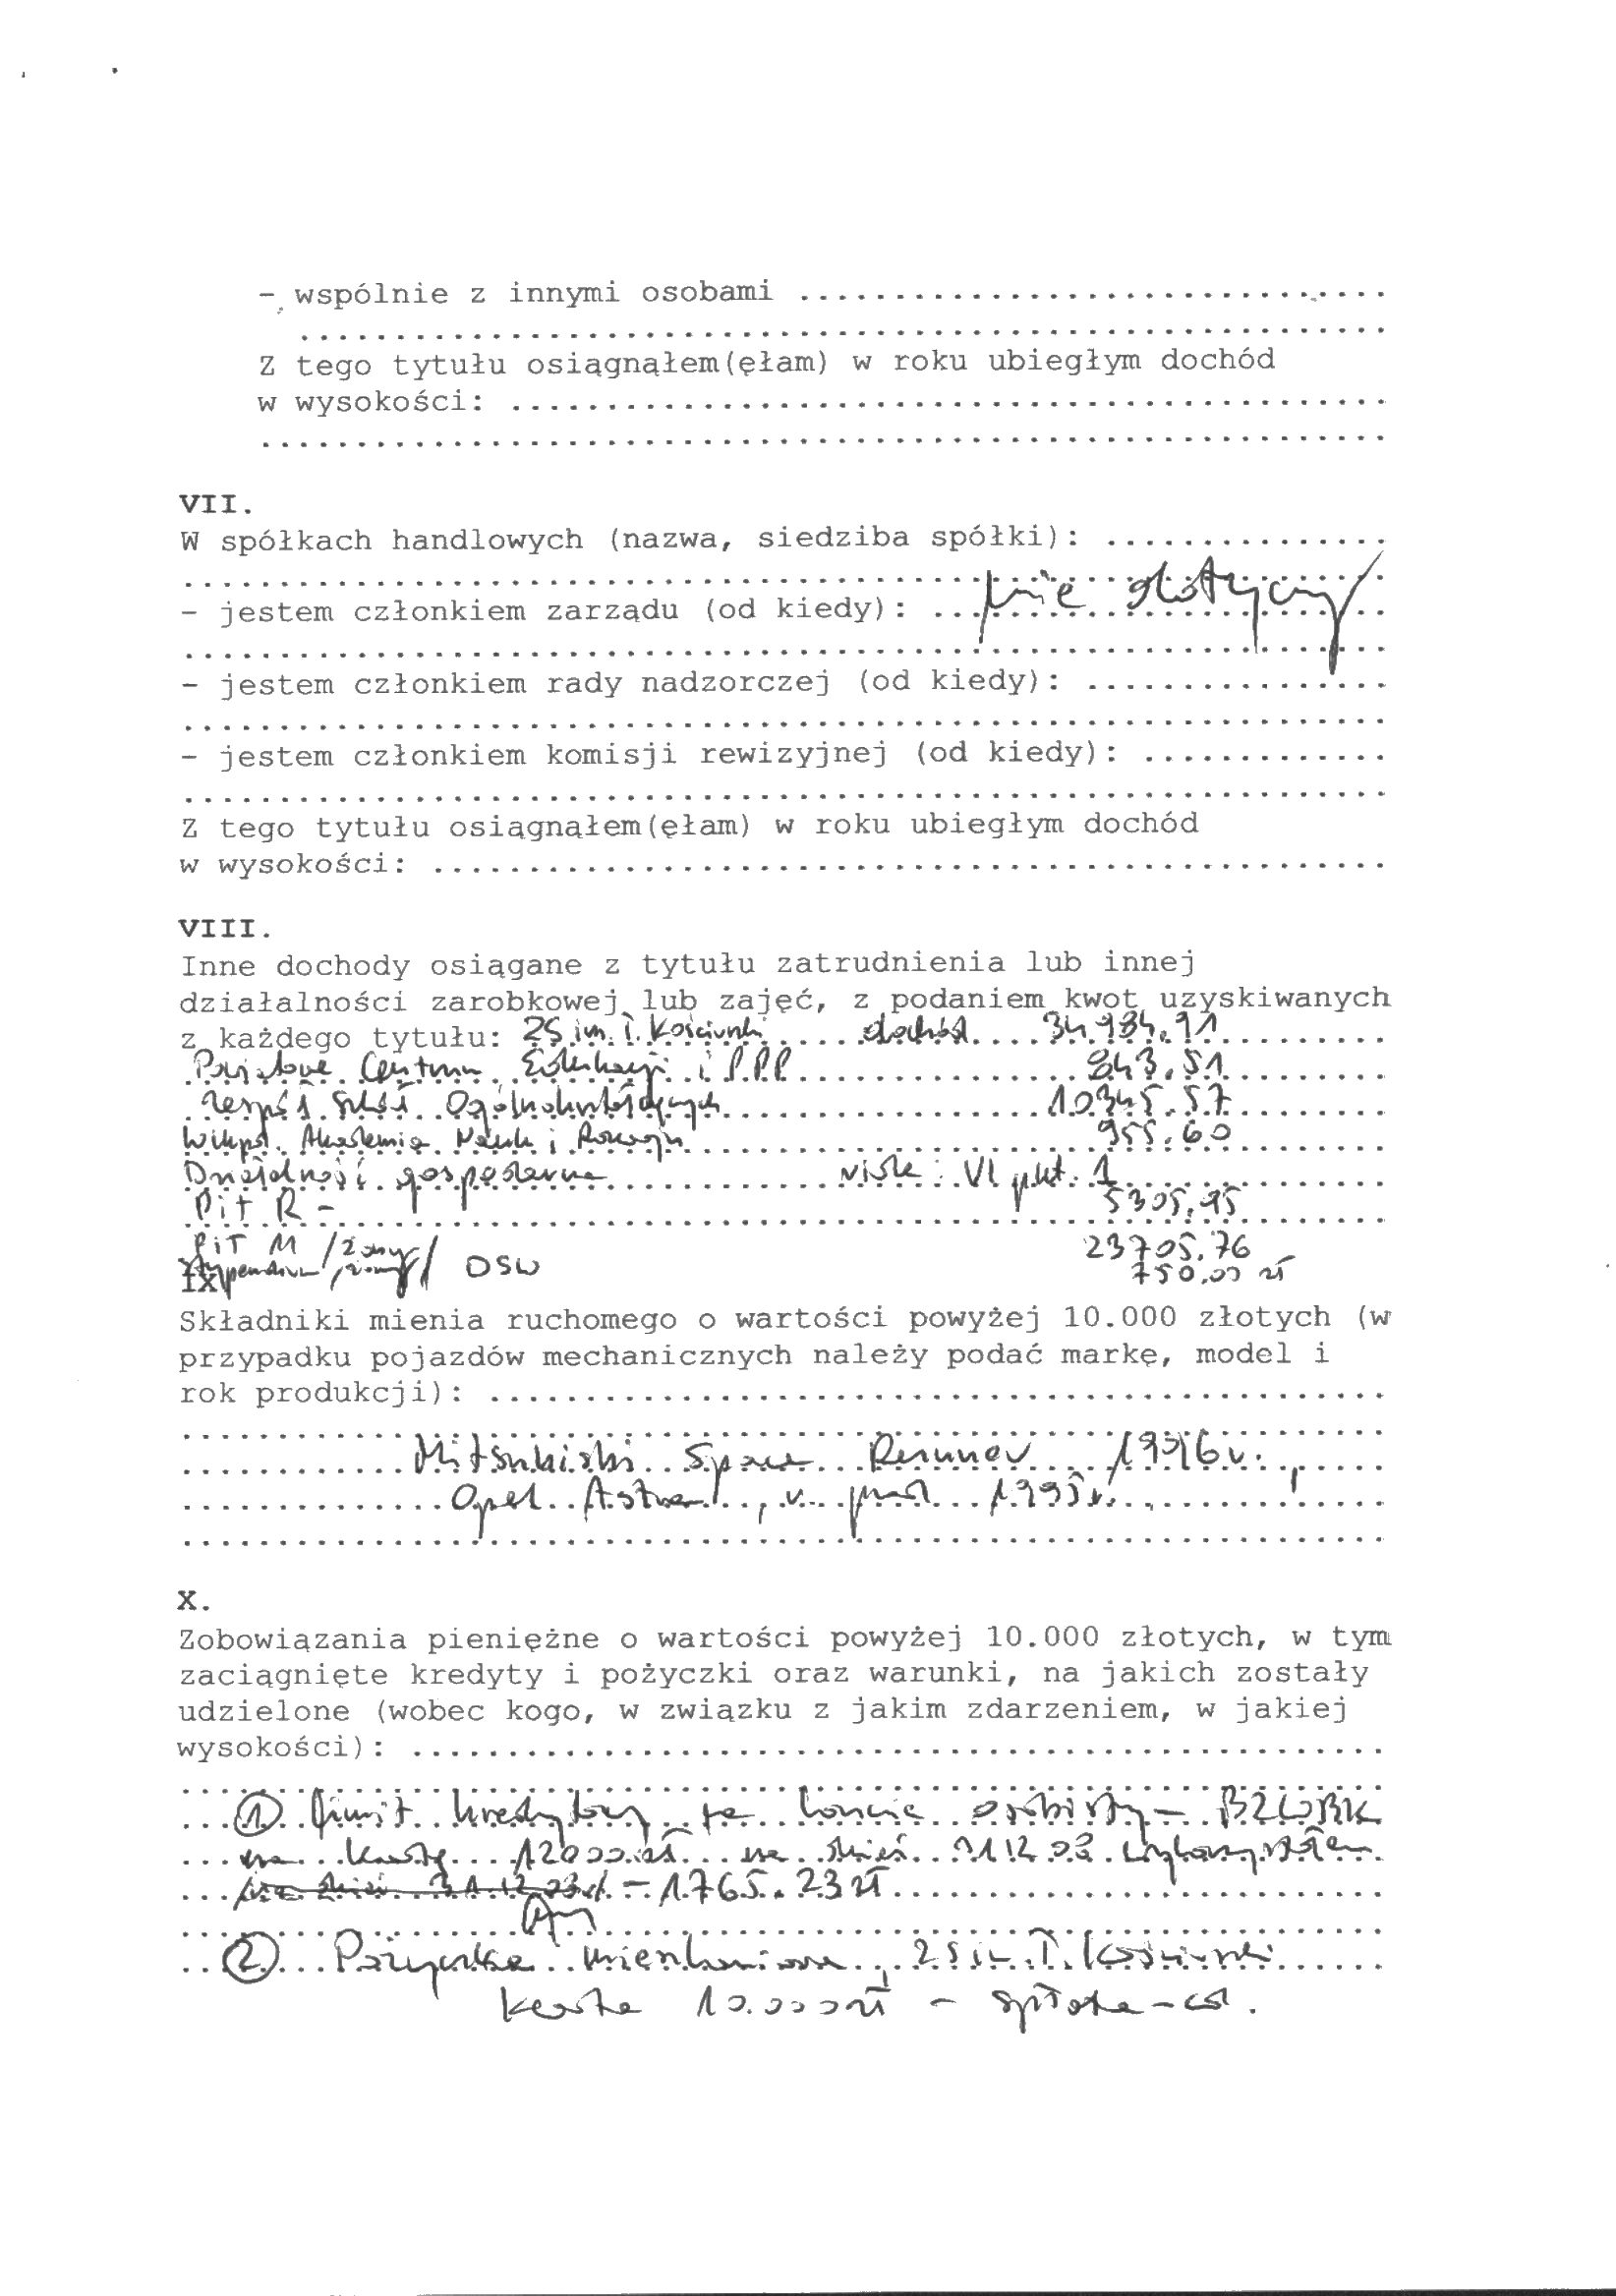 - wspólnie z innymi osobami ..............................
..........................................................
Z tego tytułu osiągnąłem(ęłam) w roku ubiegłym dochód
w wysokości: .............................................
..........................................................
VII.
W spółkach handlowych (nazwa, siedziba spółki): ..............
nie dotyczy
- jestem członkiem zarządu (od kiedy): .......................
..............................................................
- jestem członkiem rady nadzorczej (od kiedy): ...............
..............................................................
- jestem członkiem komisji rewizyjnej (od kiedy): ............
..............................................................
Z tego tytułu osiągnąłem(ęłam) w roku ubiegłym dochód
w wysokości: .................................................
VIII.
Inne dochody osiągane z tytułu zatrudnienia lub innej
działalności zarobkowej lub zajęć, z podaniem kwot uzyskiwanych
z każdego tytułu: ZS im. T. Kościuszki dochód 34 984,91
Powiatowe Centrum Edukacji i PPP 843,51
Zespół Szkół Ogólnokształcących 10345,57
Wlkpsl. Akademia Nauki i Rozwoju 955,60
Działalność gospodarcza vide: VI pkt. 1
Pit R - 5305,95
PiT M /żony/ 23705,76
Stypendium /żony/ DSW 750,00 zł
IX.
Składniki mienia ruchomego o wartości powyżej 10.000 złotych (w
przypadku pojazdów mechanicznych należy podać markę, model i
rok produkcji): ..............................................
Mitsubishi Space Runner 1996 r.,
Opel Astra, r. prod. 1995 r.
X.
Zobowiązania pieniężne o wartości powyżej 10.000 złotych, w tym
zaciągnięte kredyty i pożyczki oraz warunki, na jakich zostały
udzielone (wobec kogo, w związku z jakim zdarzeniem, w jakiej
wysokości): ..................................................
① limit kredytowy koncie osobisty - BZWBK
na kwotę 12000 zł na dzień 31 12 03 wykorzystałem
na dzień 31.12.03 - 1765.23 zł
② Pożyczka mieszkaniowa, ZS im. T. Kościuszki
kwota 10.000 zł - spłata - cd.